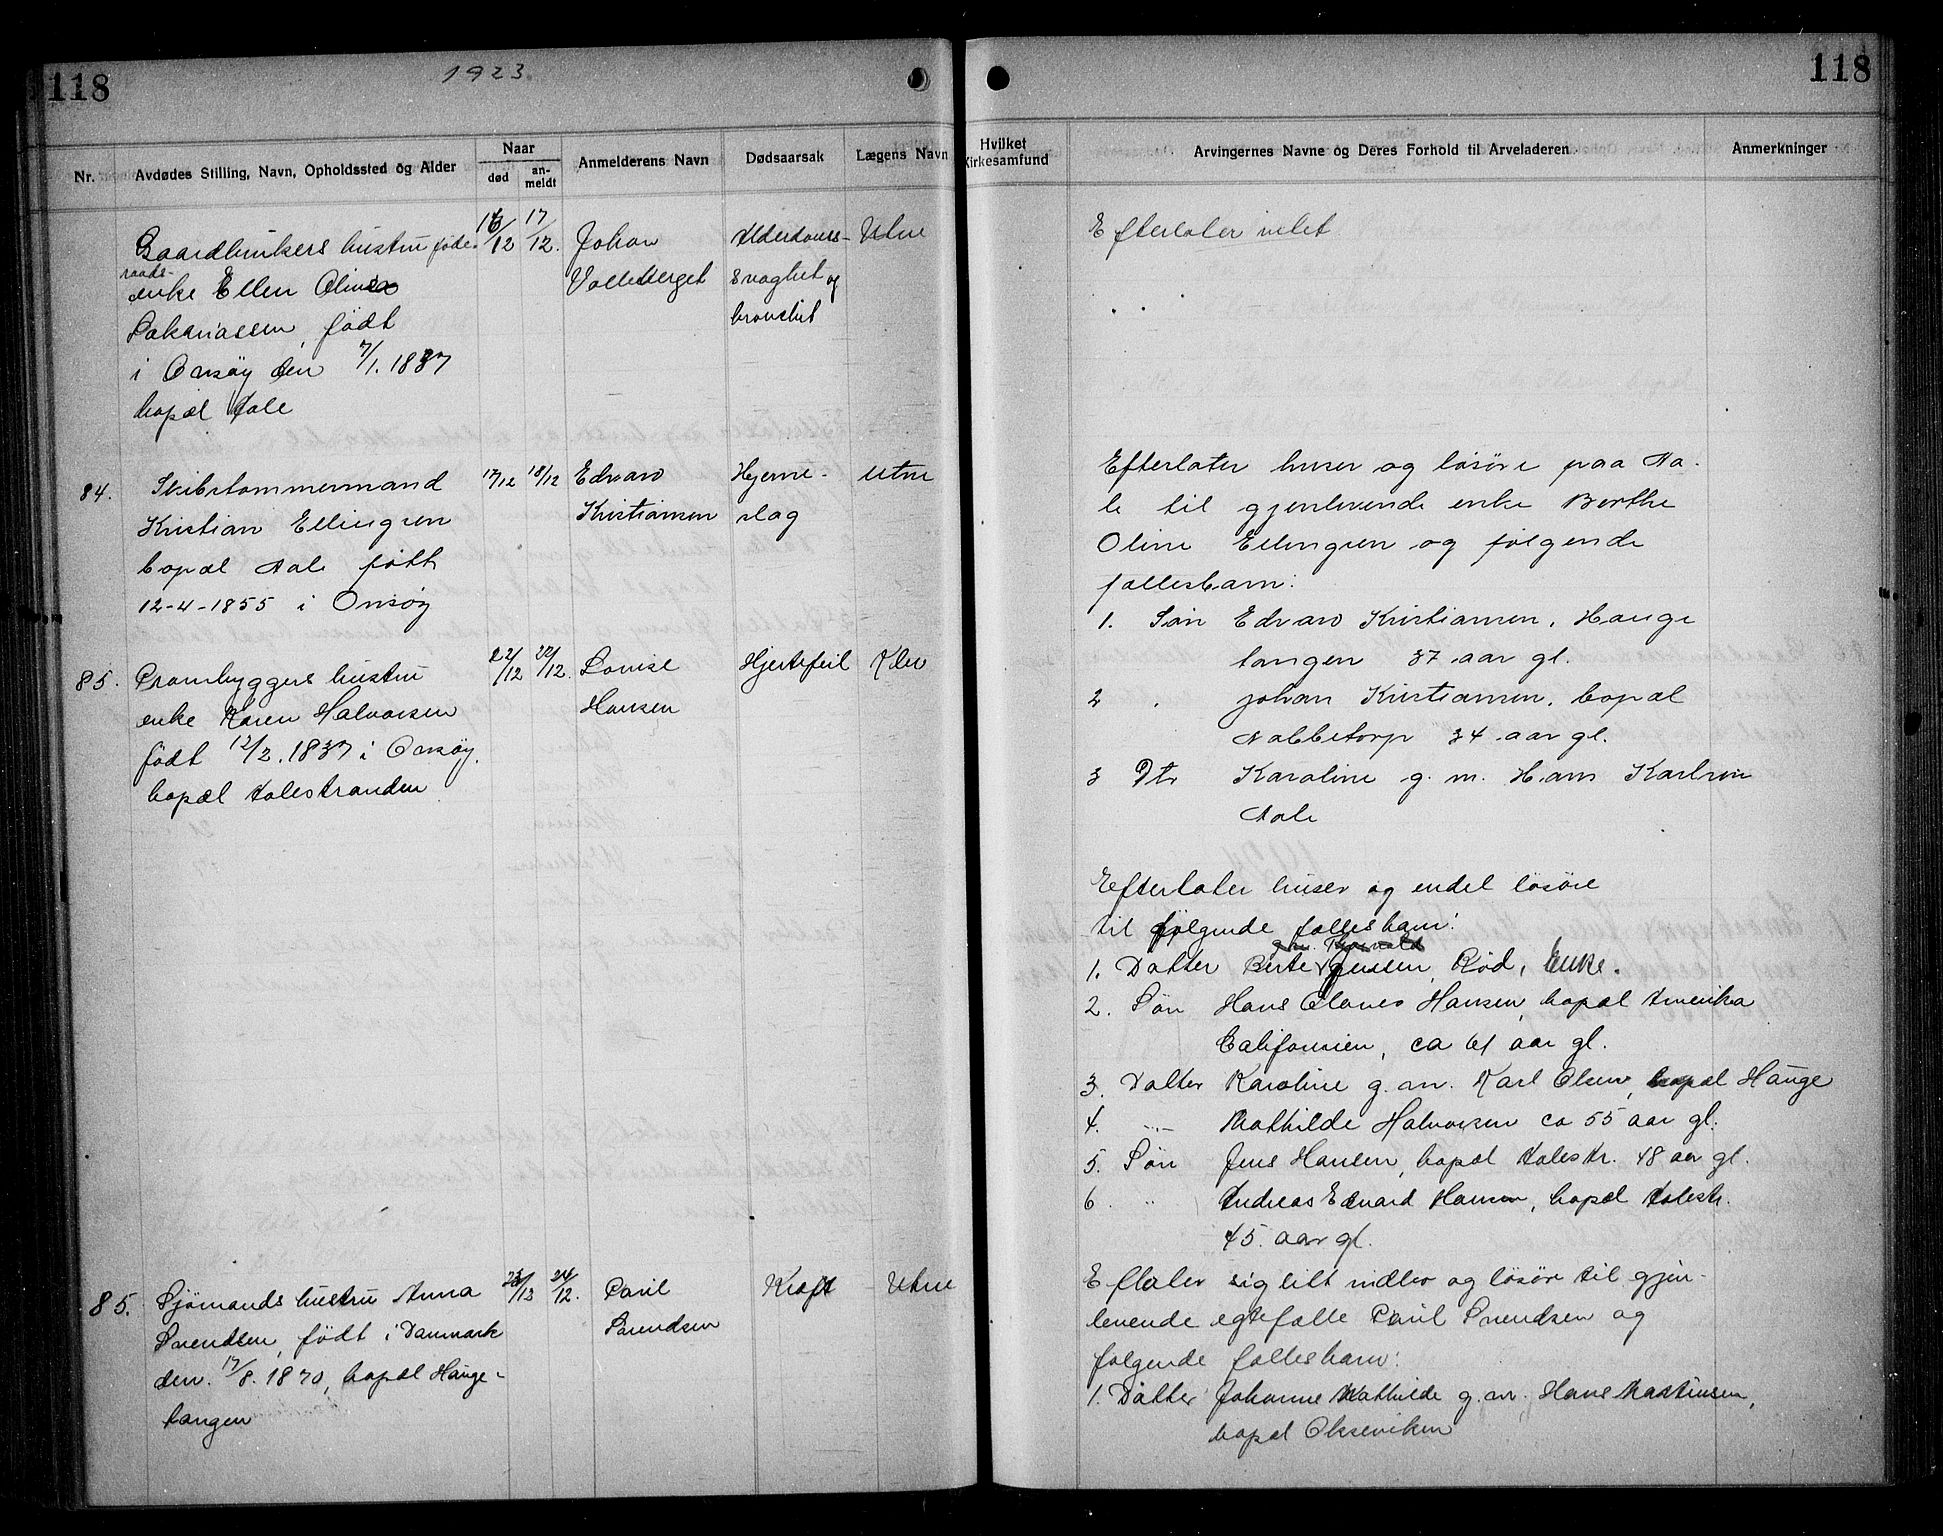 118
1923
Nr.
Avdødes Stilling, Navn, Opholdssted og Alder
Naar
død
an-
meldt
Anmelderens Navn
Dødsaarsak
Lægens Navn
Gaardbrukers hustru føde-
raads-
enke Ellen Olivea
Sakariassen, født
i Onsøy den 7/1. 1837
bopæl Aale
16/12
17/12.
Johan
Valleberget
Alderdoms-
svaghet og
bronchit
Utne
84.
Skibstømmermand
Kristian Ellingsen
bopæl Aale født
12-4-1855 i Onsøy
17/12
18/12
Edvard
Kristiansen
Hjerne-
slag
Utne
85.
Prambyggers hustru
enke Karen Halvorsen
født 12/2. 1837 i Onsøy.
bopæl Aalestranden
22/12
22/12.
Lovise
Hansen
Hjertefeil
85.
Sjömands hustru Anna
Svendsen, født i Danmark
den. 17/8. 1870, bopæl Hauge-
tangen
24/12.
Paul
Svendsen
Kræft
Utne
118
Hvilket
Kirkesamfund
Arvingernes Navne og Deres Forhold til Arveladeren
Anmerkninger
Efterlater intet
Efterlater huser og løsøre paa Aa-
le til gjenlevende enke Berthe
Oline Ellingsen og følgende
fællesbarn:
1. Søn Edvard Kristiansen, Hauge
tangen 37 aar gl.
2 " Johan Kristiansen, bopæl
Nabbetorp 34 aar gl.
3 Dtr Karoline g. m. Hans Karlsen
Aale
Efterlater huser og endel løsøre
til følgende fællesbarn:
1. Datter Berte Jensen, Rød, Enke.
2. Søn Hans Olaves Hansen, bopæl Amerika
Californien, ca 61 aar gl.
3. Datter Karoline g. m. Karl Olsen, bopæl Hauge
4. -"- Mathilde Halvorsen ca 55 aar gl.
5. Søn Jens Hansen, bopæl Aalestr. 48 aar gl.
6. " Andreas Edvard Hansen, bopæl Aalestr.
45 aar gl.
Eftlater sig litt indbo og løsøre til gjen-
levende egtefælle Paul Svendsen og
følgende fællesbarn:
1. Datter Johanne Mathilde g. m. Hans Martinsen,
bopæl Okseviken